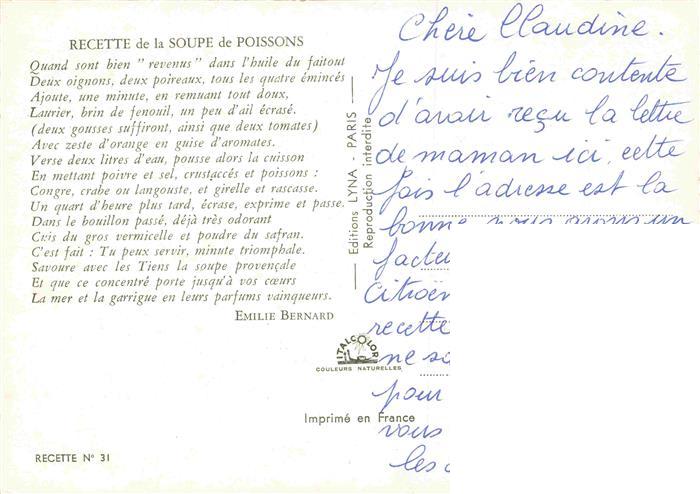 RECETTE de la SOUPE de POISSONS
Quand sont bien " revenus " dans l'huile du faitout
Deux oignons, deux poireaux, tous les quatre émincés
Ajoute, une minute, en remuant tout doux,
Laurier, brin de fenouil, un peu d'ail écrasé.
(deux gousses suffiront, ainsi que deux tomates)
Avec zeste d'orange en guise d'aromates.
Verse deux litres d'eau, pousse alors la cuisson
En mettant poivre et sel, crustacés et poissons :
Congre, crabe ou langouste, et girelle et rascasse.
Un quart d'heure plus tard, écrase, exprime et passe.
Dans le bouillon passé, déjà très odorant
Cuis du gros vermicelle et poudre du safran.
C'est fait : Tu peux servir, minute triomphale.
Savoure avec les Tiens la soupe provençale
Et que ce concentré porte jusqu'à vos cœurs
La mer et la garrigue en leurs parfums vainqueurs.
EMILIE BERNARD
RECETTE N° 31
Editions LYNA - PARIS
Reproduction interdite
ITALCOLOR
COULEURS NATURELLES
Imprimé en France
Chère Claudine.
Je suis bien contente
d'avoir reçu la lettre
de maman ici, cette
fois l'adresse est la
bonne nous avons un
facteu
Citroën
recette
ne so
pour
vous
les